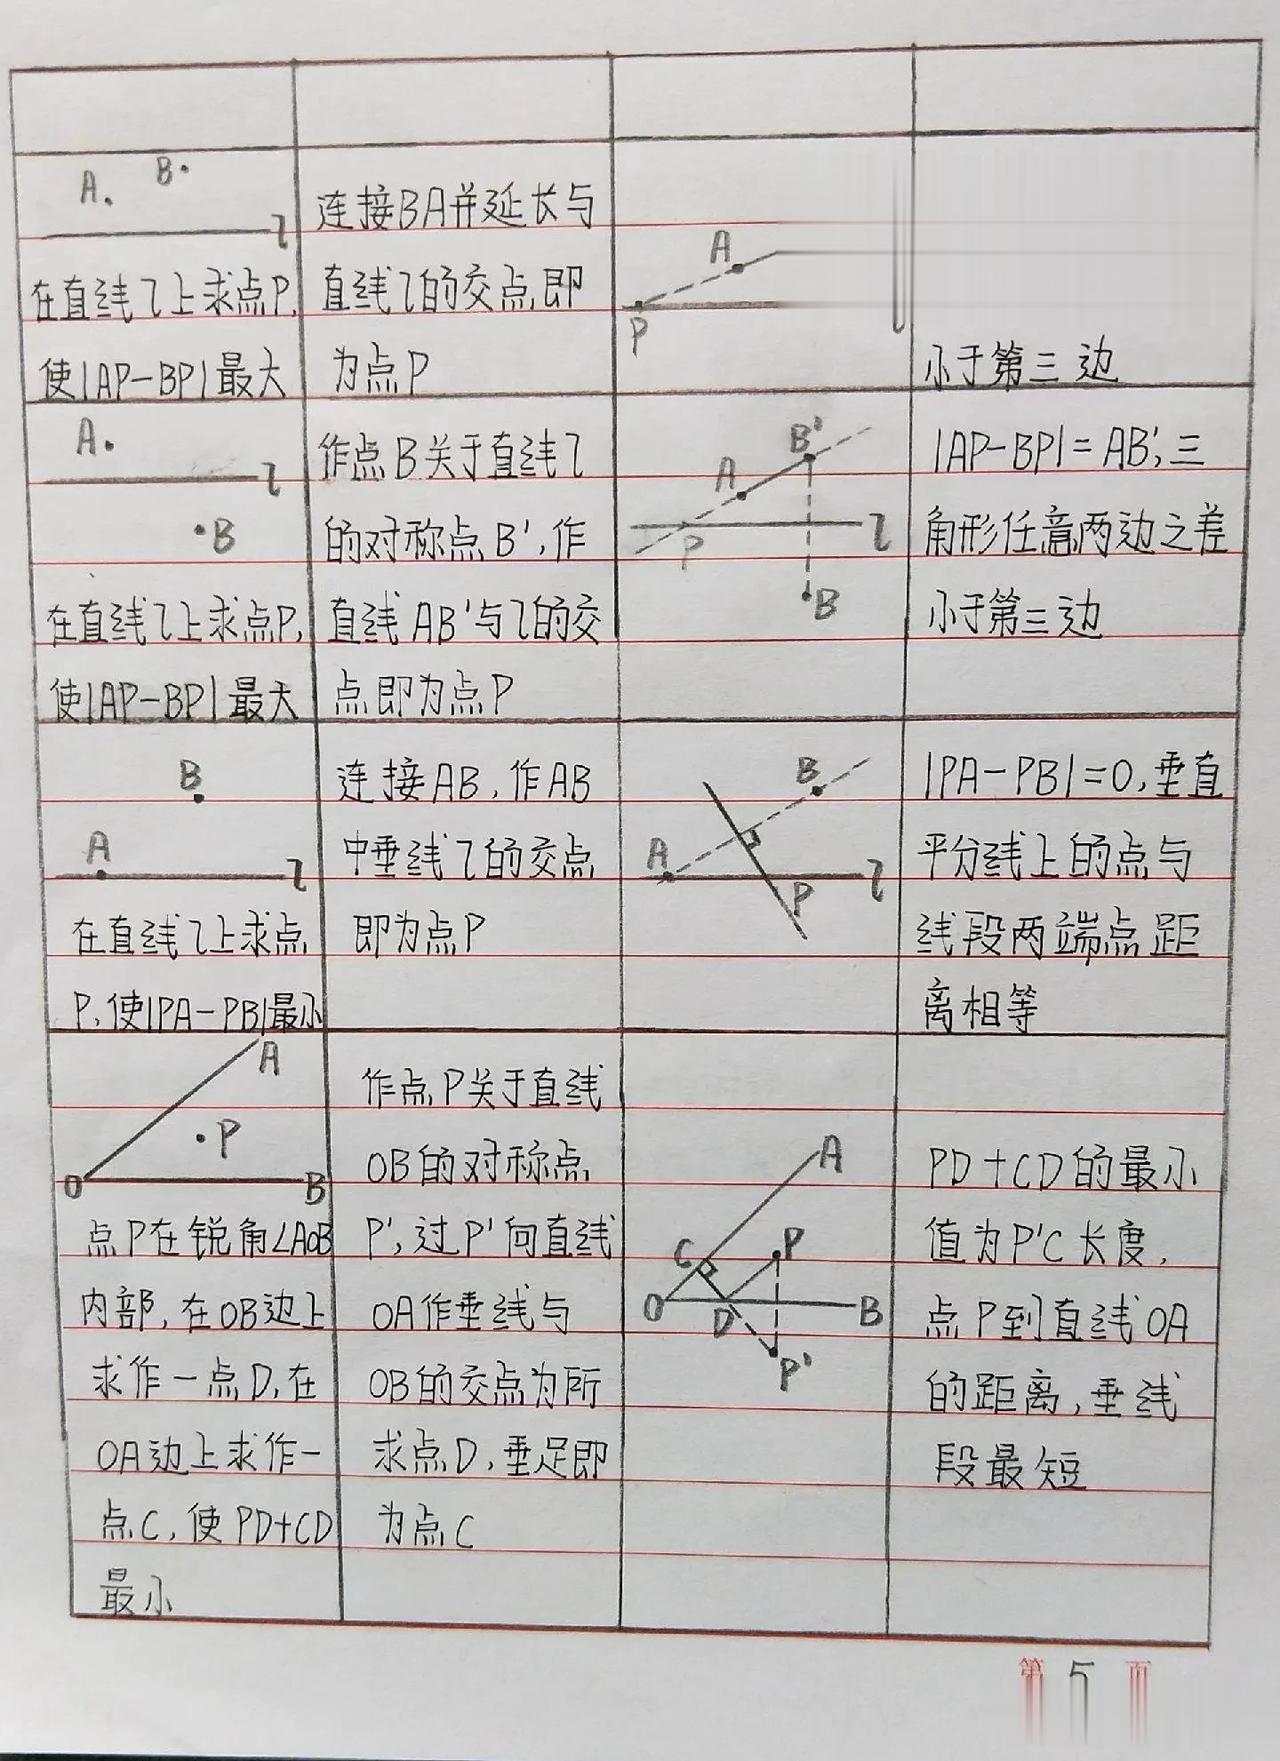 A B
l
在直线l上求点P,
使|AP-BP|最大
连接BA并延长与
直线l的交点即
为点P
A
P
小于第三边
A
l
B
在直线l上求点P,
使|AP-BP|最大
作点B关于直线l
的对称点B',作
直线AB'与l的交
点即为点P
B'
A
P l
B
|AP-BP|=AB',三
角形任意两边之差
小于第三边
B
A
l
在直线l上求点
P,使|PA-PB|最小
连接AB,作AB
中垂线l的交点
即为点P
B
A
P l
|PA-PB|=0,垂直
平分线上的点与
线段两端点距
离相等
A
P
O B
点P在锐角∠AOB
内部,在OB边上
求作一点D,在
OA边上求作一
点C,使PD+CD
最小
作点P关于直线
OB的对称点
P',过P'向直线
OA作垂线与
OB的交点为所
求点D,垂足即
为点C
A
C P
O D B
P'
PD+CD的最小
值为P'C长度,
点P到直线OA
的距离,垂线
段最短
第5页